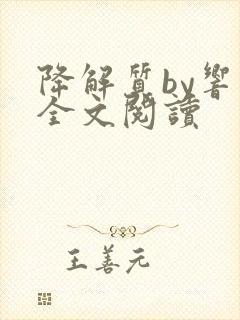 降解质by響
全文閱讀
王善元